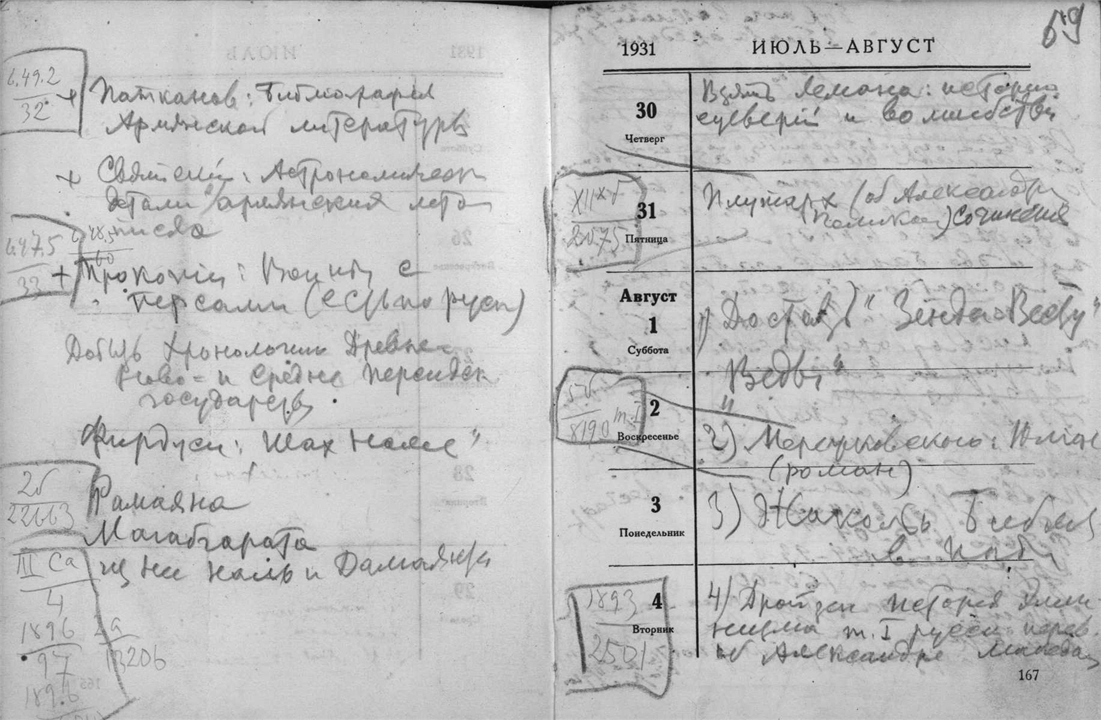 6.49.2
32
+ Патканов: Библиография
Армянской литературы
+ Святский: Астрономическ
детали армянских лето
писей
6.47.5
33
+ Прокопий: Войны с
персами (есть по русск)
Добыть Хронологии Древне-
Ново- и Средне Персидск
государств
Фирдуси: "Шах Наме"
2б
22663
Рамаяна
Магабгарата
из нее Наль и Дамаянти
III Ca
4
1896
97
1896
2а
13206
59
1931 ИЮЛЬ—АВГУСТ
30
Четверг
Взять Лемана: историю
суеверий и волшебства
31
Пятница
XII
20.75
Плутарх (об Александре
) Сочинения
Август
1
Суббота
1) Достать "Зенд-а-Весту"
"Веды"
2
Воскресенье
5б
8190 т. I
2) Мережковского: Юлиан
(роман)
3
Понедельник
3) Жаколь Библия
в
4
Вторник
1893
2501
4) Дройзен История Элли-
низма т. I русск перев.
об Александре Македон
167